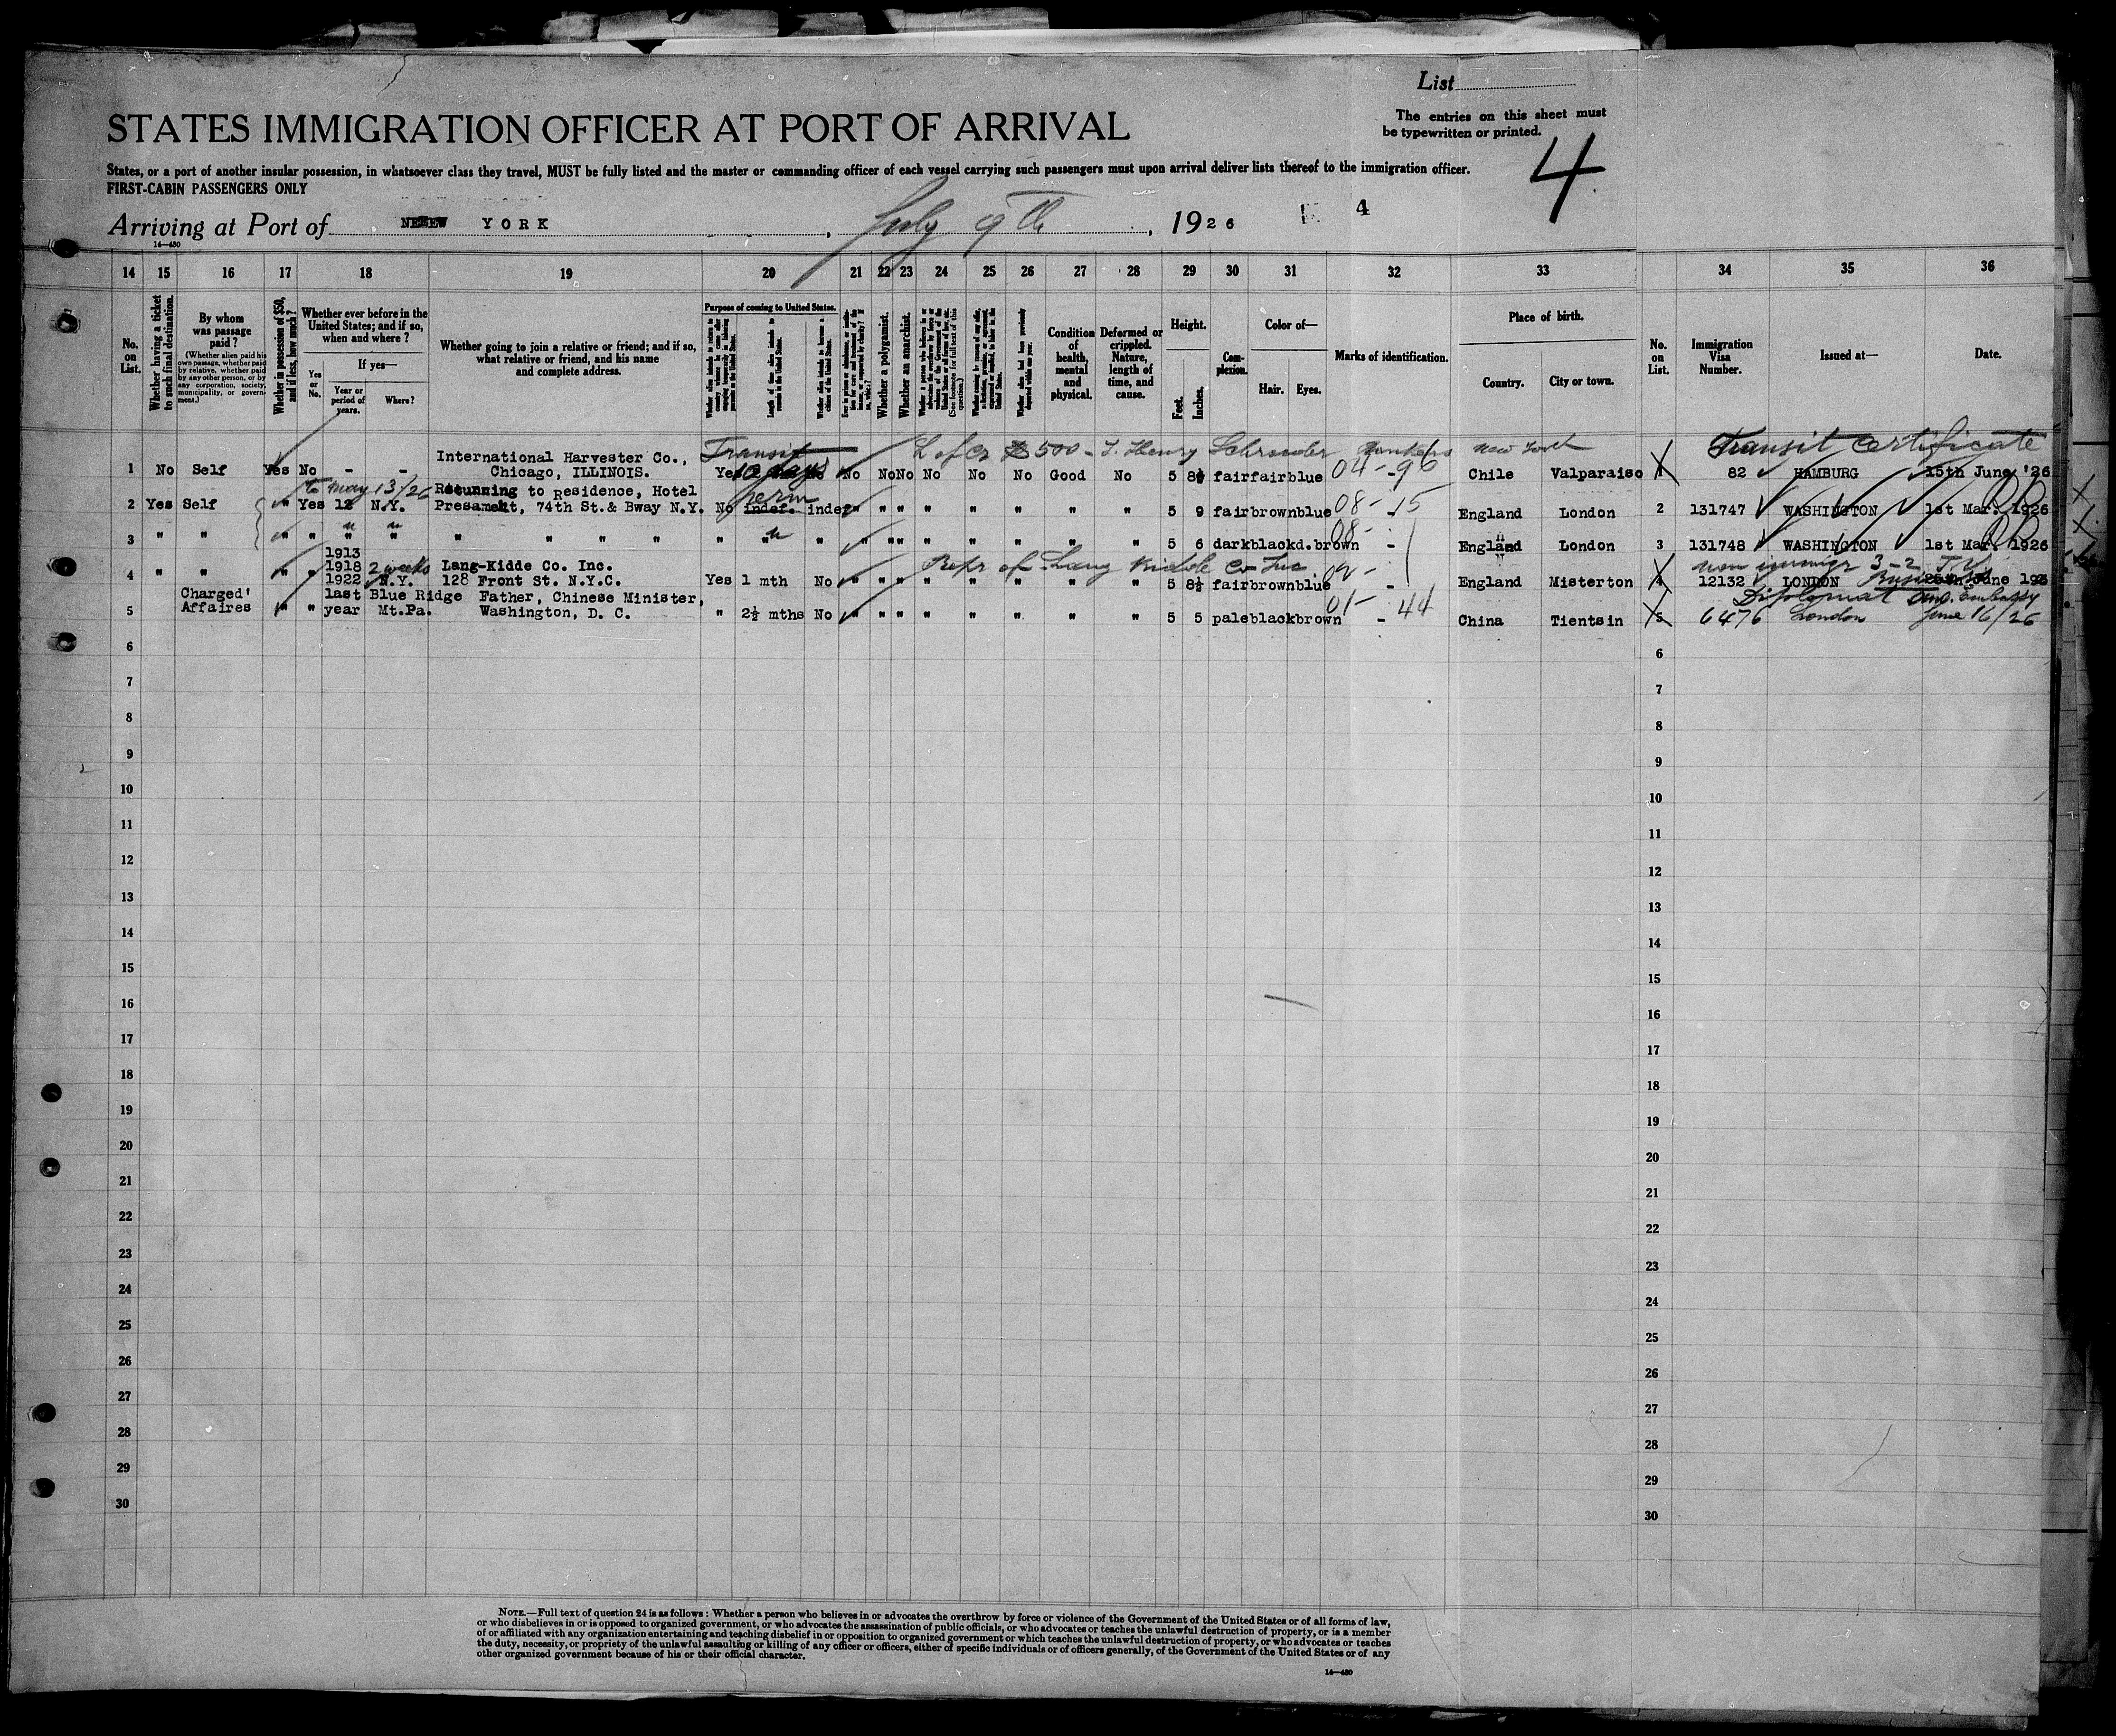 List
STATES IMMIGRATION OFFICER AT PORT OF ARRIVAL
The entries on this sheet must
be typewritten or printed.
4
States, or a port of another insular possession, in whatsoever class they travel, MUST be fully listed and the master or commanding officer of each vessel carrying such passengers must upon arrival deliver lists thereof to the immigration officer.
FIRST-CABIN PASSENGERS ONLY
Arriving at Port of YORK, July 9th, 1926 4
14—430
14 15 16 17 18 19 20 21 22 23 24 25 26 27 28 29 30 31 32 33 34 35 36
No. on List.
Whether having a ticket to such final destination.
By whom was passage paid?
(Whether alien paid his own passage, whether paid by relative, whether paid by any other person, or by any corporation, society, municipality, or government.)
Whether in possession of $50, and if less, how much?
Whether ever before in the United States; and if so, when and where?
Yes or No.
If yes—
Year or period of years.
Where?
Whether going to join a relative or friend; and if so, what relative or friend, and his name and complete address.
Purpose of coming to United States.
Length of time alien intends to remain in the United States.
Whether alien intends to become a citizen of the United States.
Whether a polygamist.
Whether an anarchist.
Condition of health, mental and physical.
Deformed or crippled. Nature, length of time, and cause.
Height.
Feet. Inches.
Complexion.
Color of—
Hair. Eyes.
Marks of identification.
Place of birth.
Country. City or town.
No. on List.
Immigration Visa Number.
Issued at—
Date.
Transit L of Cr 500 - Henry Schroeder Bankers New York Transit Certificate
International Harvester Co.,
1 No Self Yes No - - Chicago, ILLINOIS. Yes 10 days No No No No No No Good No 5 8½ fair fair blue 04-96 Chile Valparaiso 1 82 HAMBURG 15th June '26
to May 13/26 Returning to Residence, Hotel perm
2 Yes Self " Yes 12 N.Y. 74th St. & Bway N.Y. No indef. indef " " " " " " " " 5 9 fair brown blue 08-15 England London 2 131747 WASHINGTON 1st Mar. 1926
3 " " " " " " " " " " " " " " " " " " " " " 5 6 dark black d.brown 08- - England London 3 131748 WASHINGTON 1st Mar. 1926
1913
1918 2 weeks Lang-Kidde Co. Inc. Repr of Lang Kidde Co Inc. non immigr 3-2
4 " " " " 1922 N.Y. 128 Front St. N.Y.C. Yes 1 mth No " " " " " " " " 5 8½ fair brown blue - England Misterton 4 12132 LONDON June 192
Charged' last Blue Ridge Father, Chinese Minister, Diplomat Am. Embassy
5 Affaires " " year Mt.Pa. Washington, D. C. " 2½ mths No " " " " " " " " 5 5 pale black brown 01-44 - China Tientsin 5 6476 London June 16/26
6 6
7 7
8 8
9 9
10 10
11 11
12 12
13 13
14 14
15 15
16 16
17 17
18 18
19 19
20 20
21 21
22 22
23 23
24 24
25 25
26 26
27 27
28 28
29 29
30 30
NOTE.—Full text of question 24 is as follows: Whether a person who believes in or advocates the overthrow by force or violence of the Government of the United States or of all forms of law,
or who disbelieves in or is opposed to organized government, or who advocates the assassination of public officials, or who advocates or teaches the unlawful destruction of property, or is a member
of or affiliated with any organization entertaining and teaching disbelief in or opposition to organized government or which teaches the unlawful destruction of property, or who advocates or teaches
the duty, necessity, or propriety of the unlawful assaulting or killing of any officer or officers, either of specific individuals or of officers generally, of the Government of the United States or of any
other organized government because of his or their official character.
14—430